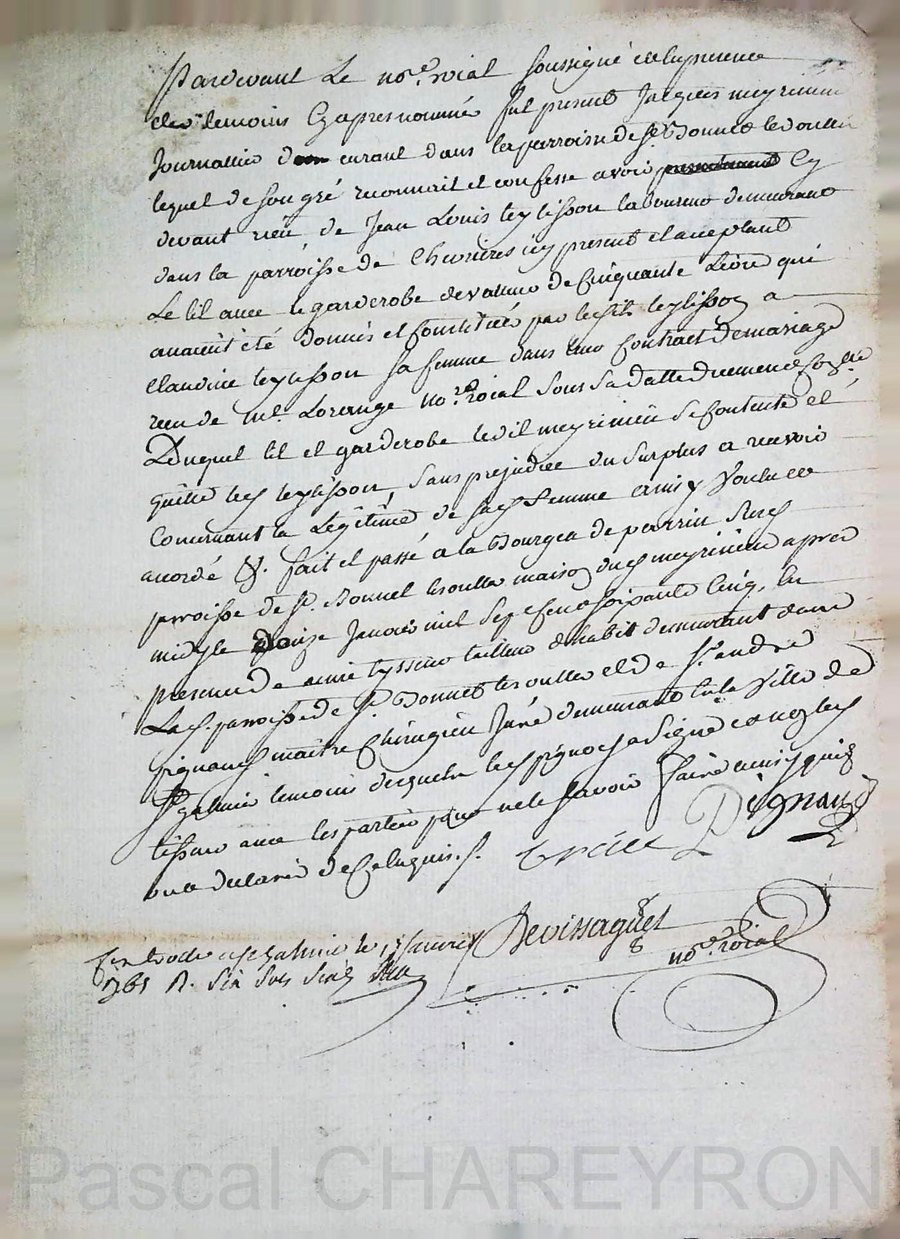 Pardevant Le no.re roial soussigné et en presence
des temoins Cy apres nommés fut present Jacques meyrieux
Journallier demeurant dans la parroisse de St. Bonnet les oulles
lequel de son gré reconnait et confesse avoir Cy
devant reçu de Jean Louis teylisson laboureur demeurant
dans la parroisse de Chevrieres icy present et acceptant
Le lit avec le garderobe de valleur de Cinquante Livre qui
avaient été donnés et Constitués par led. teylisson a
Claudine teylisson sa femme dans leur Contract de mariage
recu de me. Lorange no.re roial sous sa datte
Duquel lit et garderobe ledit meyrieux se Contente et
quitte led. teylisson, sans prejudice du surplus a recevoir
Concernant la Légitime de sad. femme ainsy voulu
acordé &. fait et passé a la Bourgea de perrin sus.
parroisse de St. Bonnet les oulles maison dud. meyrieux apres
midy le Janvier mil sept cent soixante Cinq, En
presence de aimé tysseur tailleur d'habit demurant dans
La d. parroisse de St. Bonnet les oulles et de St. andré
pignaud maitre Chirurgien Juré demeurant En la Ville de
St. galmier temoins desquels led. pignaud a Signé et non led.
tisseur avec les parties pour ne le savoir faire ainsy quils
ont declaré de Ce Enquis. /.
Pignaud
Devissaguet
no.re roial
Controllé a St. galmier le 17 Janvier
1765 R. Six sols Six d.
Pascal CHAREYRON